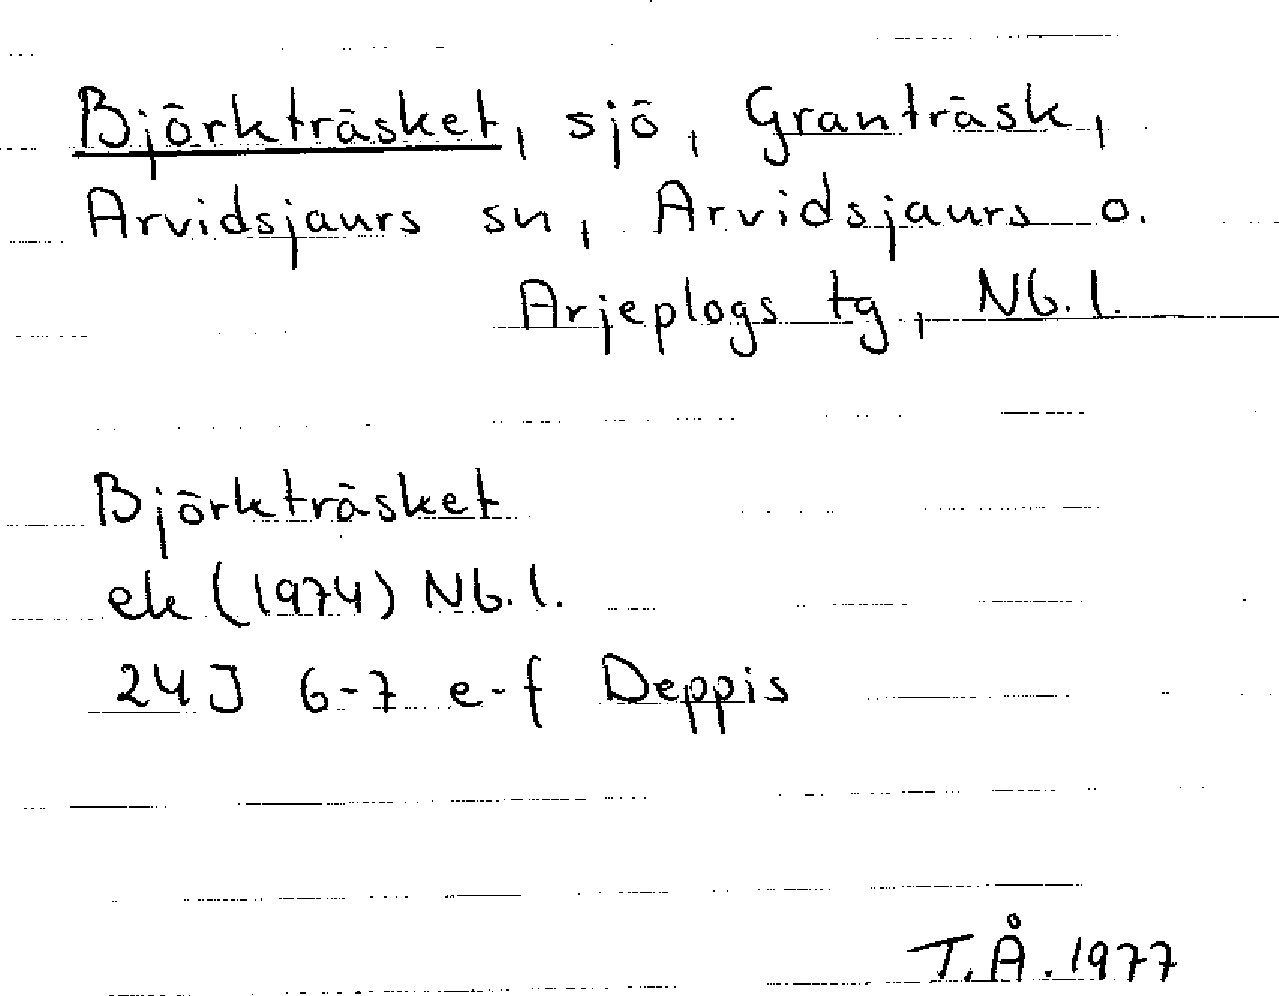 Björkträsket, sjö, Granträsk,
Arvidsjaurs sn, Arvidsjaurs o.
Arjeplogs tg, Nb. l.
Björkträsket
ek (1974) Nb. l.
24 J 6-7 e-f Deppis
T.Å. 1977